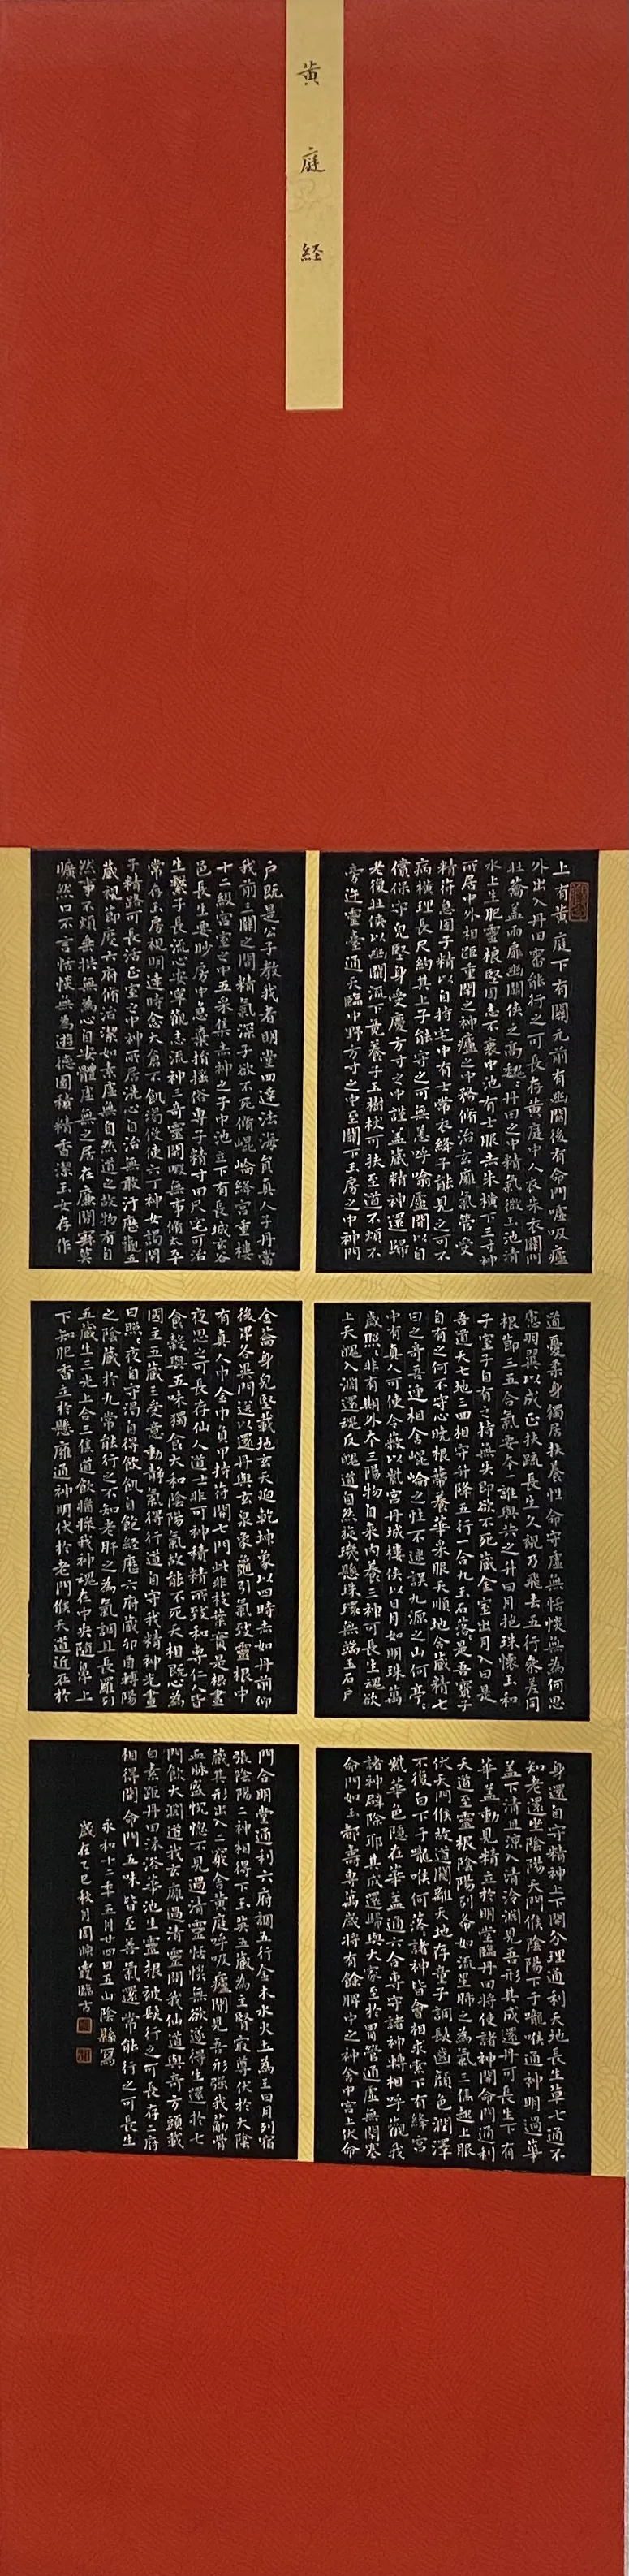 黄庭経
上有黄庭下有關元前有幽闕後有命門噓吸廬
外出入丹田審能行之可長存黄庭中人衣朱衣關門
壯籥盖兩扉幽闕俠之高巍丹田之中精氣微玉池清
水上生肥靈根堅固志不衰中池有士服赤朱橫下三寸神
所居中外相距重閇之神廬之中務脩治玄廱氣管受
精符急固子精以自持宅中有士常衣絳子能見之可不
病橫理長尺約其上子能守之可無恙呼噏廬閒以自
償保守皃堅身受慶方寸之中謹盖藏精神還歸
老復壯俠以幽闕流下竟養子玉樹杖可扶至道不煩不
旁迕靈臺通天臨中野方寸之中至關下玉房之中神門
戶既是公子教我者明堂四達法海員真人子丹當
我前三關之閒精氣深子欲不死脩崐崘絳宮重樓
十二級宮室之中五采集赤神之子中池立下有長城玄谷
邑長生要眇房中急棄捐搖俗專子精寸田尺宅可治
生繫子長流心安寧觀志流神三奇靈閑暇無事脩太平
常存玉房視明達時念大倉不飢渴役使六丁神女謁閇
子精路可長活正室之中神所居洗心自治無敢汙歷觀五
藏視節度六府脩治潔如素虛無自然道之故物有自
然事不煩垂拱無為心自安體虛無之居在廉閒寂莫
曠然口不言恬惔無為遊德園積精香潔玉女存作
道憂柔身獨居扶養性命守虛無恬惔無為何思
慮羽翼以成正扶疏長生久視乃飛去五行參差同
根節三五合氣要本一誰與共之升日月抱珠懷玉和
子室子自有之持無失即欲不死藏金室出月入日是
吾道天七地三回相守升降五行一合九玉石落是吾寶子
自有之何不守心曉根蔕養華采服天順地合藏精七
日之奇吾連相合崐崘之性不迷誤九源之山何亭
中有真人可使令蔽以紫宮丹城樓俠以日月如明珠萬
歲照非有期外本三陽物自來内養三神可長生魂欲
上天魄入淵還魂反魄道自然旋璣懸珠環無端玉石戶
金籥身皃堅載地玄天迫乾坤象以四時赤如丹前仰
後卑各異門送以還丹與玄泉象龜引氣致靈根中
有真人巾金巾負甲持符開七門此非枝葉實是根晝
夜思之可長存仙人道士非可神積精所致和專仁人皆
食穀與五味獨食大和陰陽氣故能不死天相既心為
國主五藏王受意動靜氣得行道自守我精神光晝
日照夜自守渴自得飲飢自飽經歷六府藏卯酉轉陽
之陰藏於九常能行之不知老肝之為氣調且長羅列
五藏生三光上合三焦道飲醬漿我神魂在中央隨鼻上
下知肥香立於懸廱通神明伏於老門候天道近在於
身還自守精神上下開分理通利天地長生草七通不
知老還坐陰陽天門候陰陽下于嚨喉通神明過華
盖下清且涼入清泠淵見吾形其成還丹可長生下有
華盖動見精立於明堂臨丹田將使諸神開命門通利
天道至靈根陰陽列布如流星肺之為氣三焦起上服
伏天門候故道闚離天地存童子調髮齒顔色潤澤
不復白下于嚨喉何落諸神皆會相求索下有絳宮
紫華色隱在華盖通六合專守諸神轉相呼觀我
諸神辟除耶其成還歸與大家至於胃管通虛無閇塞
命門如玉都壽專萬歲將有餘脾中之神舍中宮上伏命
門合明堂通利六府調五行金木水火土為王日月列宿
張陰陽二神相得下玉英五藏為主腎最尊伏於大陰
藏其形出入二竅舍黄庭呼吸廬閒見吾形強我筋骨
血脉盛恍惚不見過清靈恬惔無欲遂得生還於七
門飲大淵道我玄廱過清靈問我仙道與奇方頭載
白素距丹田沐浴華池生靈根被髮行之可長存二府
相得開命門五味皆至善氣還常能行之可長生
永和十二年五月廿四日五山陰縣寫
歲在乙巳秋月周臨古